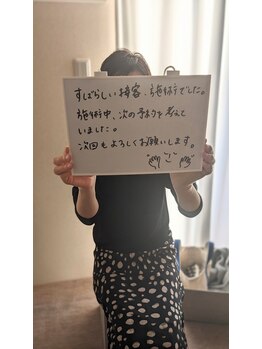 すばらしい接客、施術でした。
施術中、次の予約を考えて
いました。
次回もよろしくお願いします。